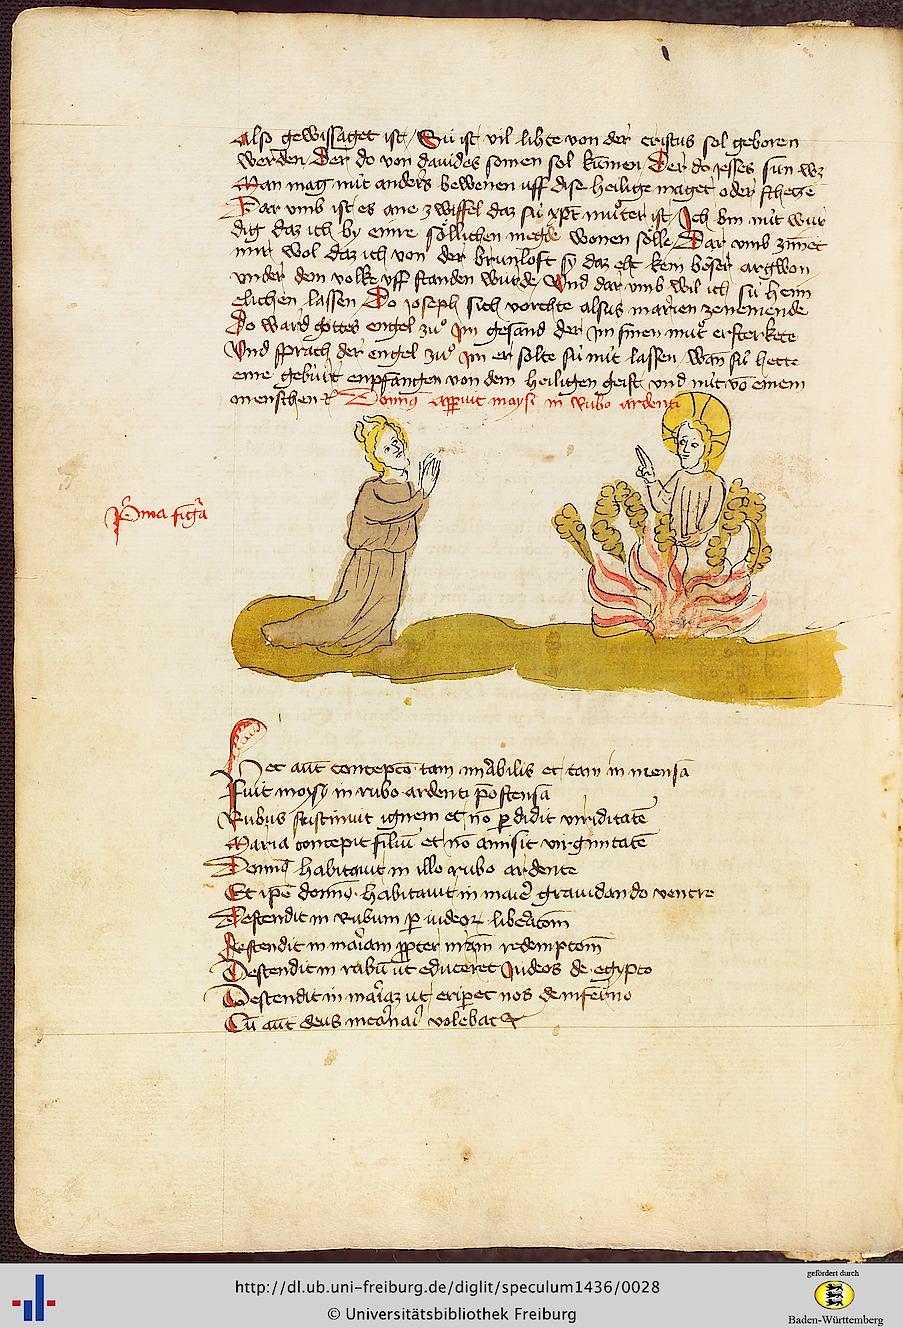 Also gewissaget ist / Sü ist vil lihte von der cristus sol geboren
werden Der do von dauides somen sol kumen Der do jesses sun wz
Man mag nüt anders bewenen uff dise heilige maget oder sthege
Dar vmb ist es ane zwiffel daz sü xpī muͦter ist Ich bin nüt wur
dig daz ich by einre söllichen megde wonen sölle Dar vmb zimet
mir wol daz ich von der brunloft sy daz eht kein böser argwon
vnder dem volke vff standen wurde / Vnd dar vmb wil ich sü heim
elichen lassen Do joseph sich vorchte alsus marien zenemende
Do ward gottes engel zuͦ jm gesand der jm sinen muͦt ersterkete
Vnd sprach der engel zuͦ jm er solte sü nüt lassen / wan sü hette
eine geburt enpfangen von dem heiligen geist vnd nüt vō einem
menschen ꝛc Domīꝯ apparuit moysi in rubo ardenti
Pͥma figͬa
Hec aūt concepcō tam mīabilis et tam in mensā
Fuit moysi in rubo ardenti p̄ostensā
Rubus sustinuit ignem et nō ꝑdidit viriditatē
Maria concepit filiū et nō amisit virginitatē
Domīꝯ habitauit in illo rubo ardente
Et ip̄e domīꝯ habitauit in maīe grauidando ventre
Descendit in rubum ꝑ iudeoꝝ libeācōm
Descendit in maͥiam ꝓpter nr̄am redempcōm
Descendit in rubū ut educeret Judeos de egypto
Descendit in maͥiaz ut eriꝑet nos de inferno
Cū aūt deus incarnaͥ volebat ꝛc
http://dl.ub.uni-freiburg.de/diglit/speculum1436/0028
© Universitätsbibliothek Freiburg
gefördert durch
Baden-Württemberg